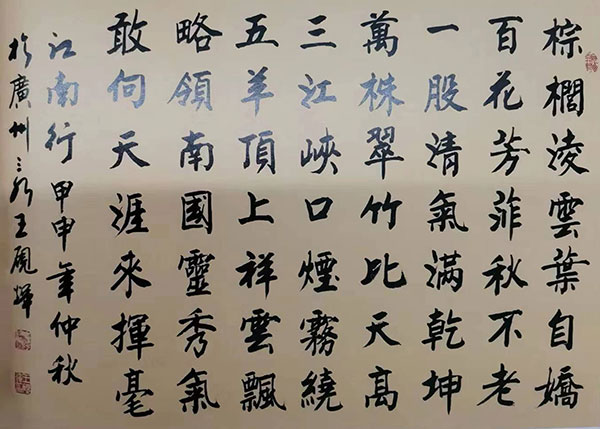 棕櫚淩雲葉自嬌
百花芳菲秋不老
一股清氣滿乾坤
萬株翠竹比天高
三江峽口煙霧繞
五羊頂上祥雲飄
略領南國靈秀氣
敢向天涯來揮毫
江南行 甲申年仲秋
於廣州 王 輝